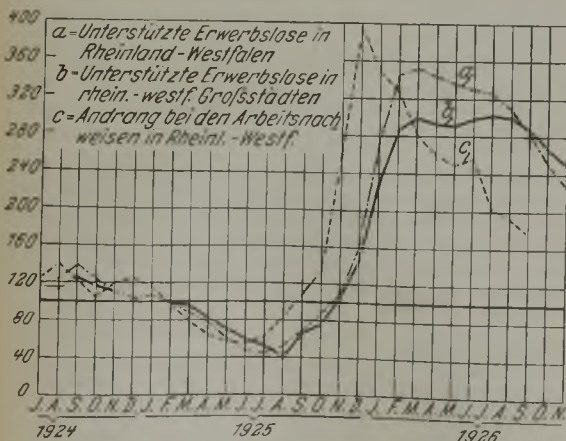 400
360
320
280
240
200
160
120
80
40
0
a = Unterstützte Erwerbslose in
Rheinland-Westfalen
b = Unterstützte Erwerbslose in
rhein.-westf. Großstädten
c = Andrang bei den Arbeitsnach
weisen in Rheinl.-Westf.
a
b
c
J. A. S. O. N. D. J. F. M. A. M. J. J. A. S. O. N. D. J. F. M. A. M. J. J. A. S. O. N.
1924 1925 1926